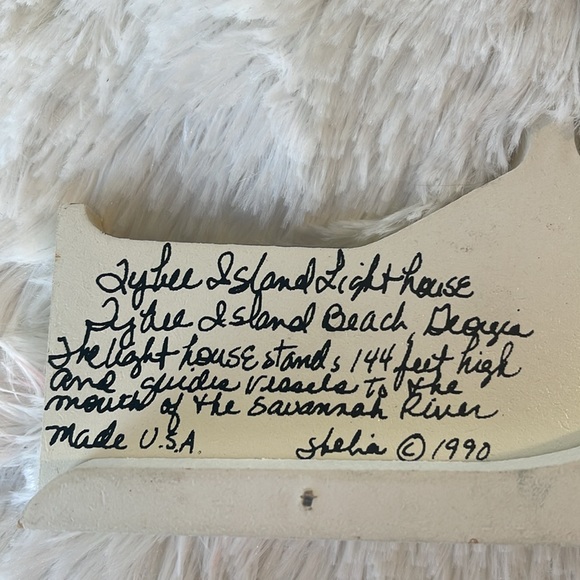 Tybee Island Light house
Tybee Island Beach, Georgia
The light house stands 144 feet high
and guides vessels to the
mouth of the Savannah River
made U.S.A. Shelia © 1990